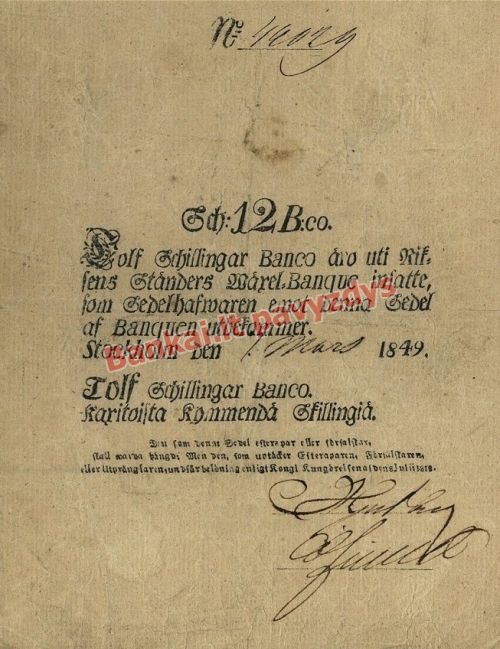 No 40029
Sch: 12 B:co.
Tolf Schillingar Banco äro uti Rik-
sens Ständers Wäxel-Banque insatte,
som Sedelhafwaren emot denna Sedel
af Banquen utbekommer.
Stockholm den 1. Mars 1849.
Bankai.lt pavyzdys
Tolf Schillingar Banco.
Karitoista Kymmendä Skillingiä.
Den som denne Sedel efterapar eller förfalskar,
skall warda hängd; Men den, som uptäcker Efteraparen, Förfalskaren,
eller Utprånglaren, undfår belöning enligt Kongl. Kungörelsen